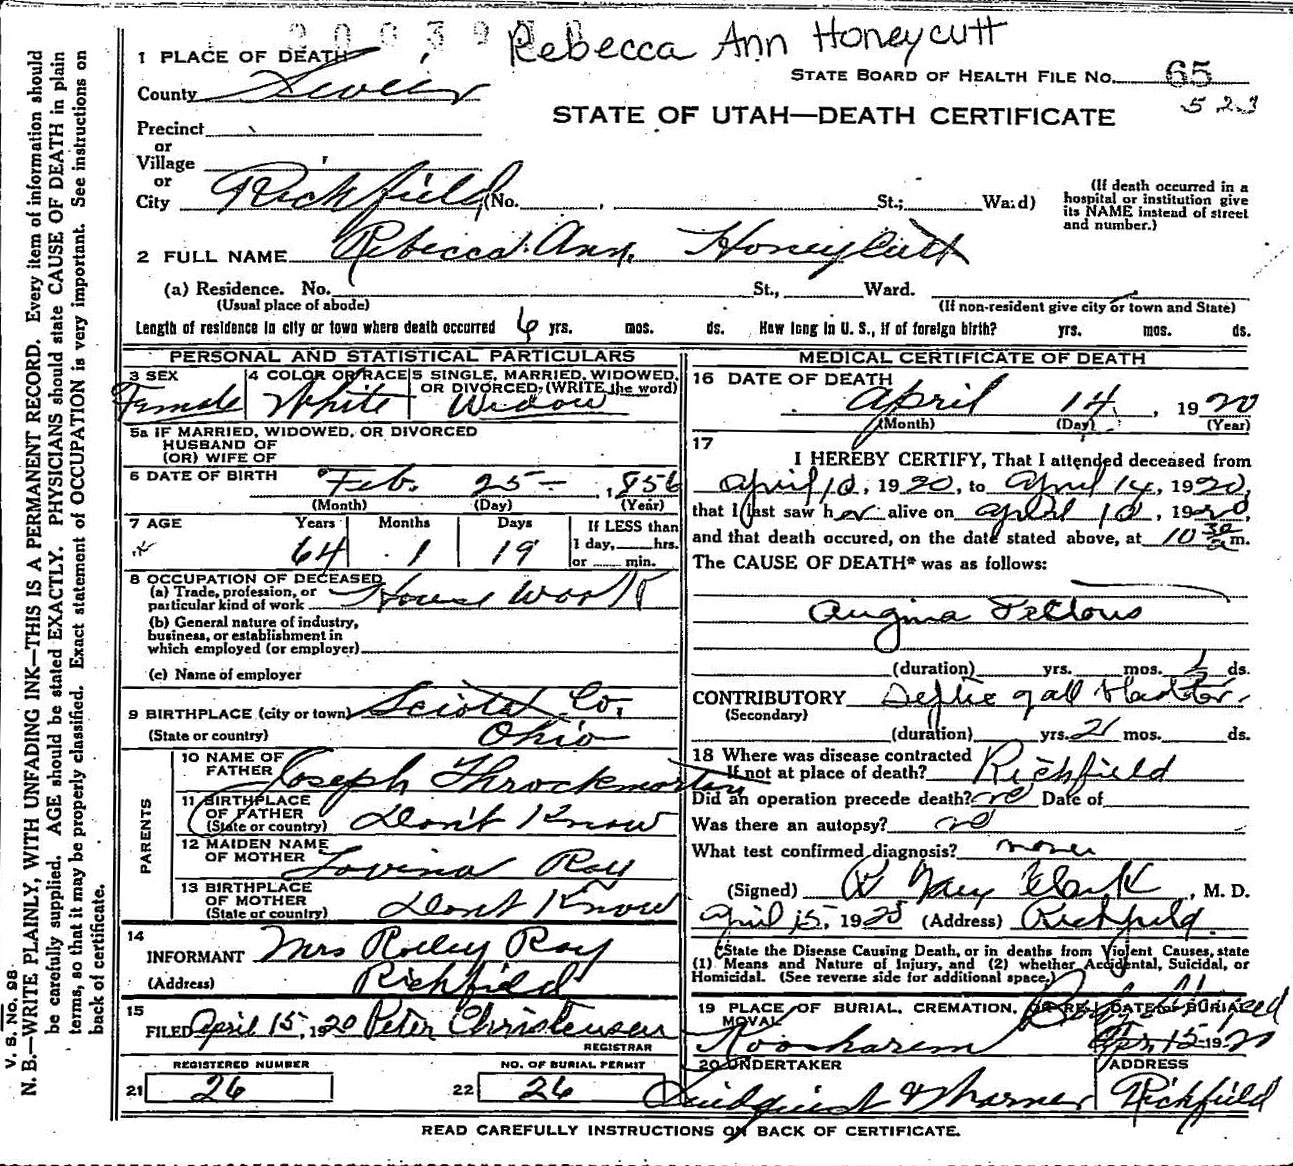 Rebecca Ann Honeycutt
1 PLACE OF DEATH
STATE BOARD OF HEALTH FILE NO. 65
523
County Sevier
STATE OF UTAH—DEATH CERTIFICATE
Precinct
or
Village
or
City Richfield (No. , St.; Ward)
(If death occurred in a
hospital or institution give
its NAME instead of street
and number.)
2 FULL NAME Rebecca Ann Honeycutt
(a) Residence. No. St., Ward.
(Usual place of abode) (If non-resident give city or town and State)
Length of residence in city or town where death occurred 6 yrs. mos. ds. How long in U. S., if of foreign birth? yrs. mos. ds.
PERSONAL AND STATISTICAL PARTICULARS
3 SEX 4 COLOR OR RACE 5 SINGLE, MARRIED, WIDOWED,
OR DIVORCED, (WRITE the word)
Female White Widow
5a IF MARRIED, WIDOWED, OR DIVORCED
HUSBAND OF
(OR) WIFE OF
6 DATE OF BIRTH Feb. 25 — , 1856
(Month) (Day) (Year)
7 AGE Years Months Days If LESS than
64 1 19 1 day, hrs.
or min.
8 OCCUPATION OF DECEASED
(a) Trade, profession, or
particular kind of work House Work
(b) General nature of industry,
business, or establishment in
which employed (or employer)
(c) Name of employer
9 BIRTHPLACE (city or town) Scioto Co.
(State or country) Ohio
PARENTS
10 NAME OF
FATHER Joseph Throckmorton
11 BIRTHPLACE
OF FATHER
(State or country) Don't Know
12 MAIDEN NAME
OF MOTHER Lovina Roy
13 BIRTHPLACE
OF MOTHER
(State or country) Dont Know
14
INFORMANT Mrs Rolley Roy
(Address) Richfield
15
FILED April 15, 1920 Peter Christensen
REGISTRAR
REGISTERED NUMBER NO. OF BURIAL PERMIT
21 26 22 26
MEDICAL CERTIFICATE OF DEATH
16 DATE OF DEATH
April 14, 1920
(Month) (Day) (Year)
17
I HEREBY CERTIFY, That I attended deceased from
April 10, 1920, to April 14, 1920,
that I last saw her alive on April 10, 1920,
and that death occured, on the date stated above, at 10 30 a m.
The CAUSE OF DEATH* was as follows:
Angina
(duration) yrs. mos. ds.
CONTRIBUTORY gall
(Secondary)
(duration) yrs. mos. ds.
18 Where was disease contracted
If not at place of death? Richfield
Did an operation precede death? no Date of
Was there an autopsy? no
What test confirmed diagnosis? none
(Signed) Clark, M. D.
April 15, 1920 (Address) Richfield
*State the Disease Causing Death, or in deaths from Violent Causes, state
(1) Means and Nature of Injury, and (2) whether Accidental, Suicidal, or
Homicidal. (See reverse side for additional space.)
19 PLACE OF BURIAL, CREMATION, OR RE- DATE OF BURIAL
MOVAL
Koosharem Apr. 15 1920
20 UNDERTAKER ADDRESS
Richfield
READ CAREFULLY INSTRUCTIONS ON BACK OF CERTIFICATE.
V. S. No. 98
N. B.—WRITE PLAINLY, WITH UNFADING INK—THIS IS A PERMANENT RECORD. Every item of information should
be carefully supplied. AGE should be stated EXACTLY. PHYSICIANS should state CAUSE OF DEATH in plain
terms, so that it may be properly classified. Exact statement of OCCUPATION is very important. See instructions on
back of certificate.